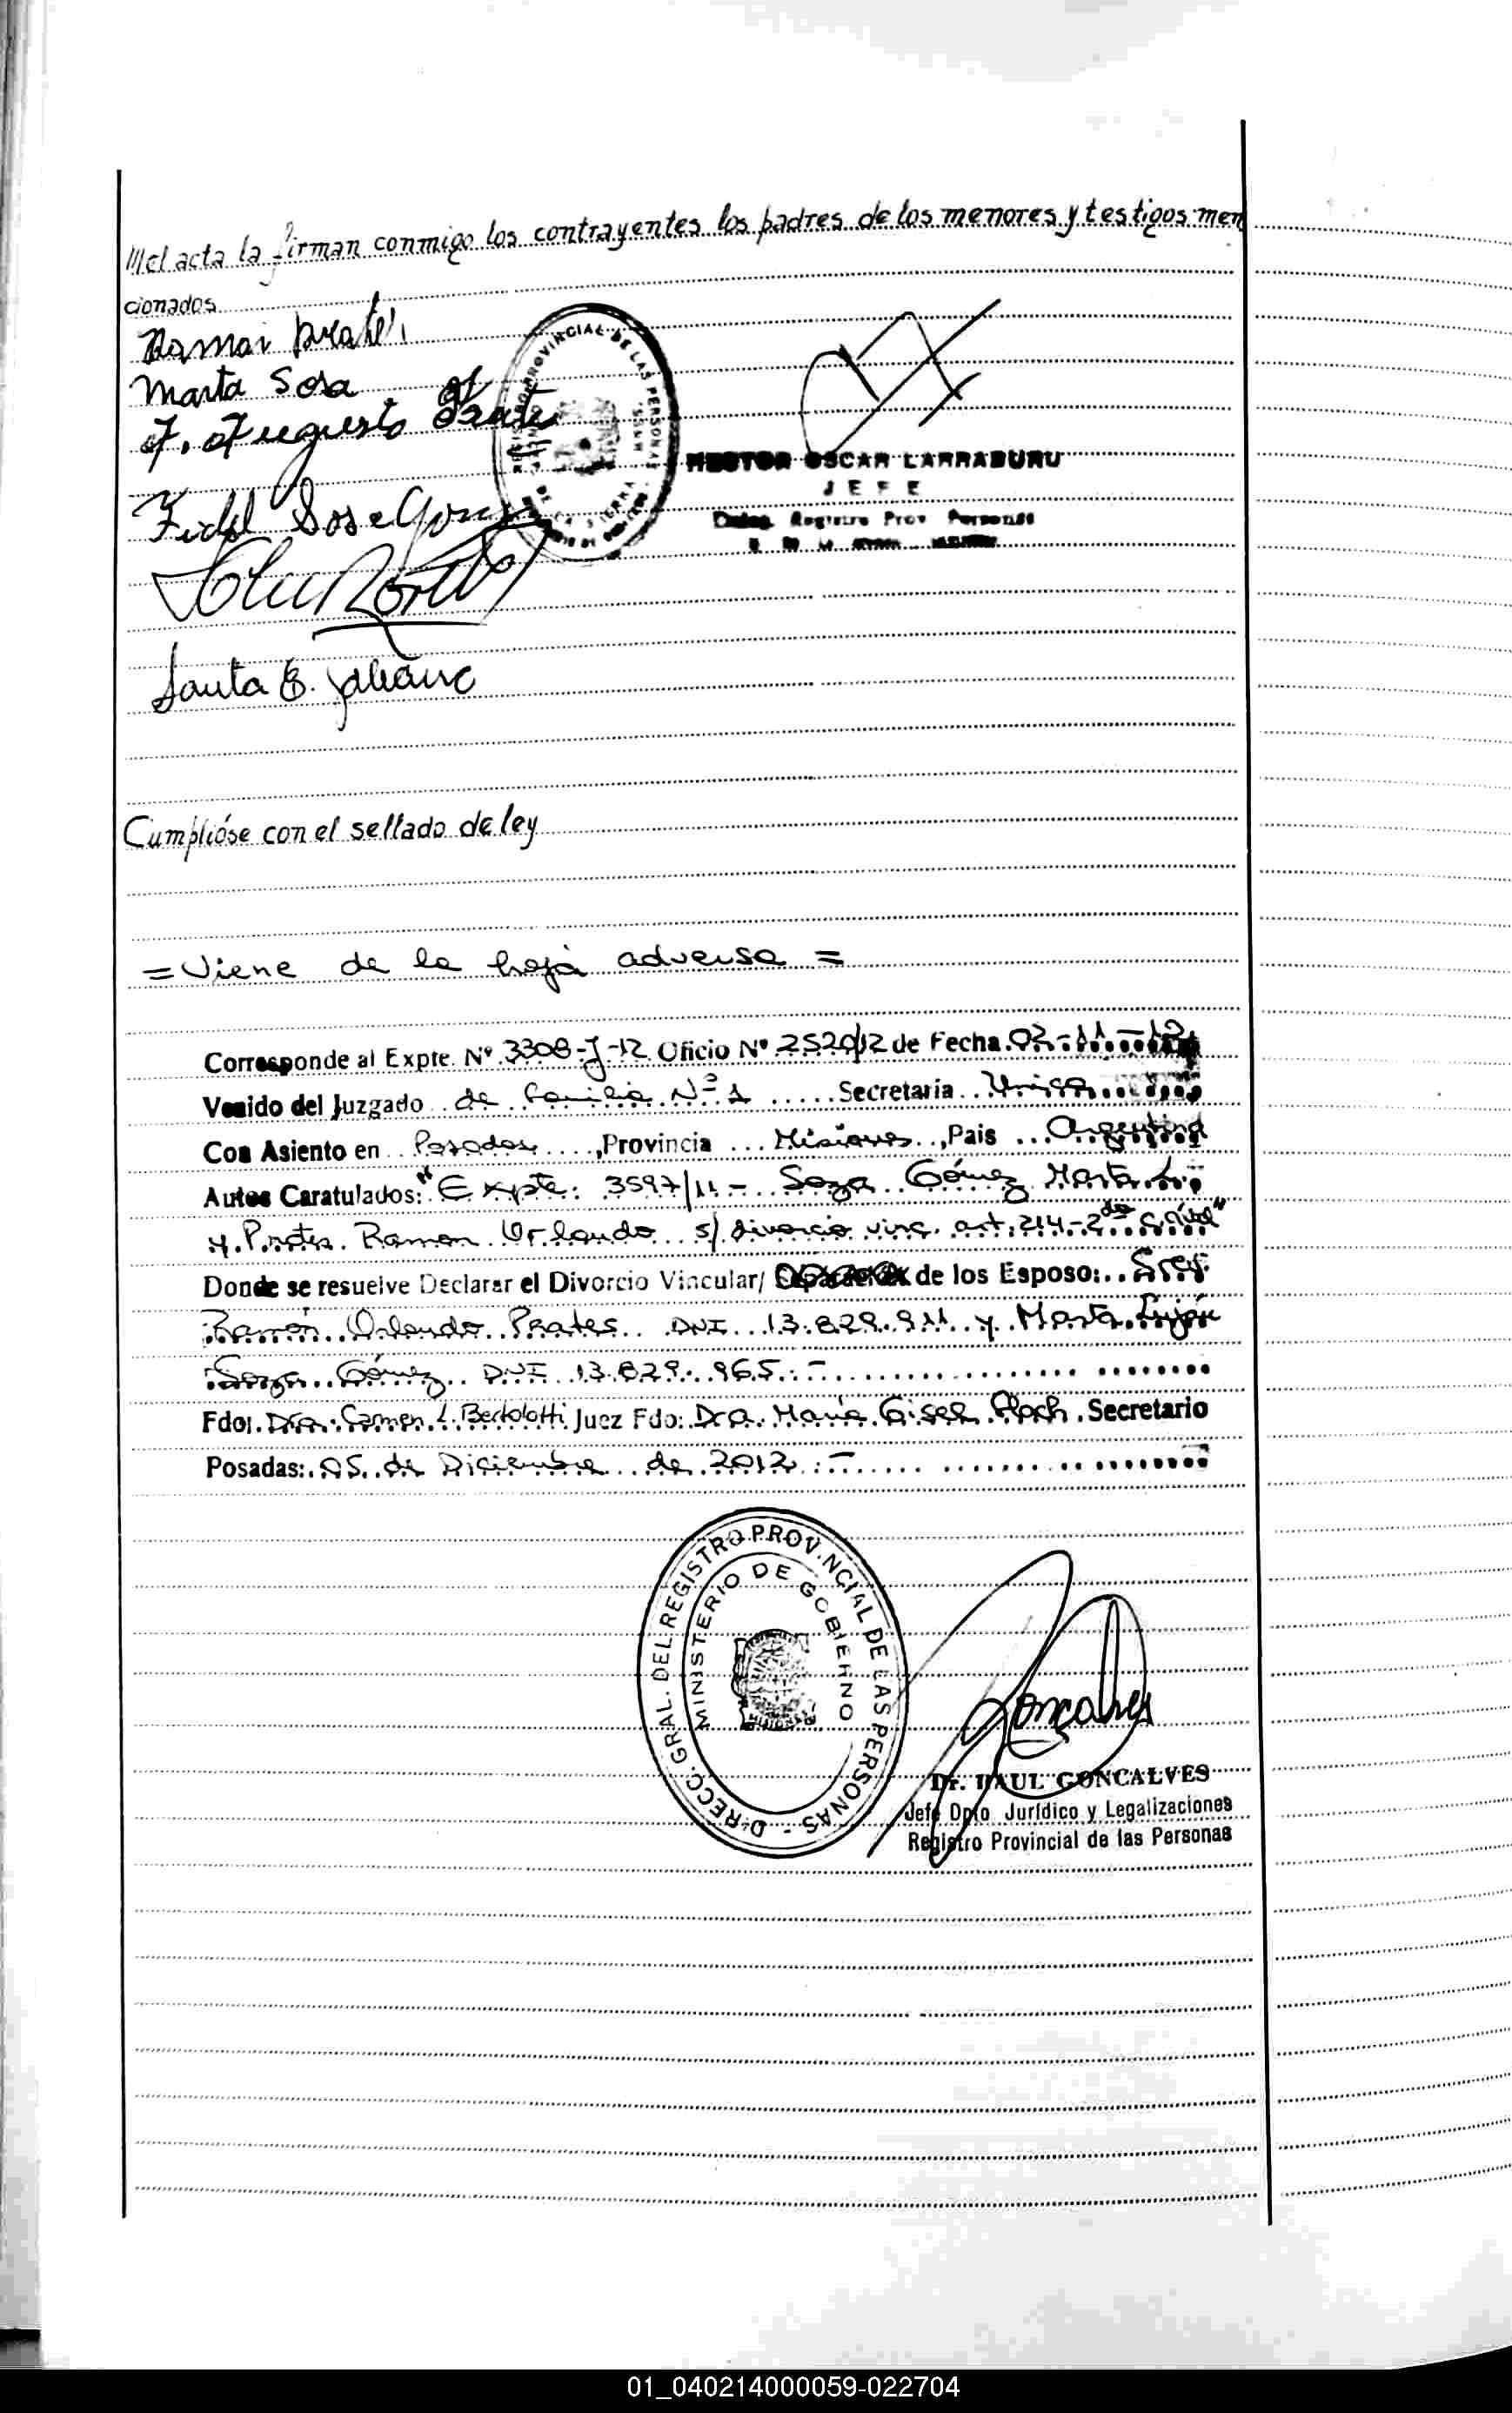 el acta la firman conmigo los contrayentes los padres de los menores y testigos men
cionados
Marta Sosa
HECTOR OSCAR LARRABURU
JEFE
Registro Prov Personas
Santa B. Galeano
Cumplióse con el sellado de ley
= Viene de la hoja adversa =
Corresponde al Expte. Nº 3308-J-12 Oficio Nº 2520/12 de Fecha 02-11-12
Venido del Juzgado de Familia Nº 1 Secretaria Unica
Con Asiento en Posadas, Provincia Misiones, Pais Argentina
Autos Caratulados: "Expte: 3597/11 - Soza Gómez Marta
y Prates Ramon Orlando s/ divorcio vinc. art. 214-2do C. Civil"
Donde se resuelve Declarar el Divorcio Vincular/ de los Esposo: Sres
Ramón Orlando Prates DNI 13.829.911 y Marta Luján
Soza Gómez DNI 13.829.965.-
Fdo: Dra. Carmen L. Bertolotti Juez Fdo: Dra. María Gisela Secretario
Posadas: 05 de Diciembre de 2012.-
DIRECC. GRAL. DEL REGISTRO PROVINCIAL DE LAS PERSONAS -
MINISTERIO DE GOBIERNO
Goncalves
Dr. RAUL GONCALVES
Jefe Dpto Jurídico y Legalizaciones
Registro Provincial de las Personas
01_040214000059-022704